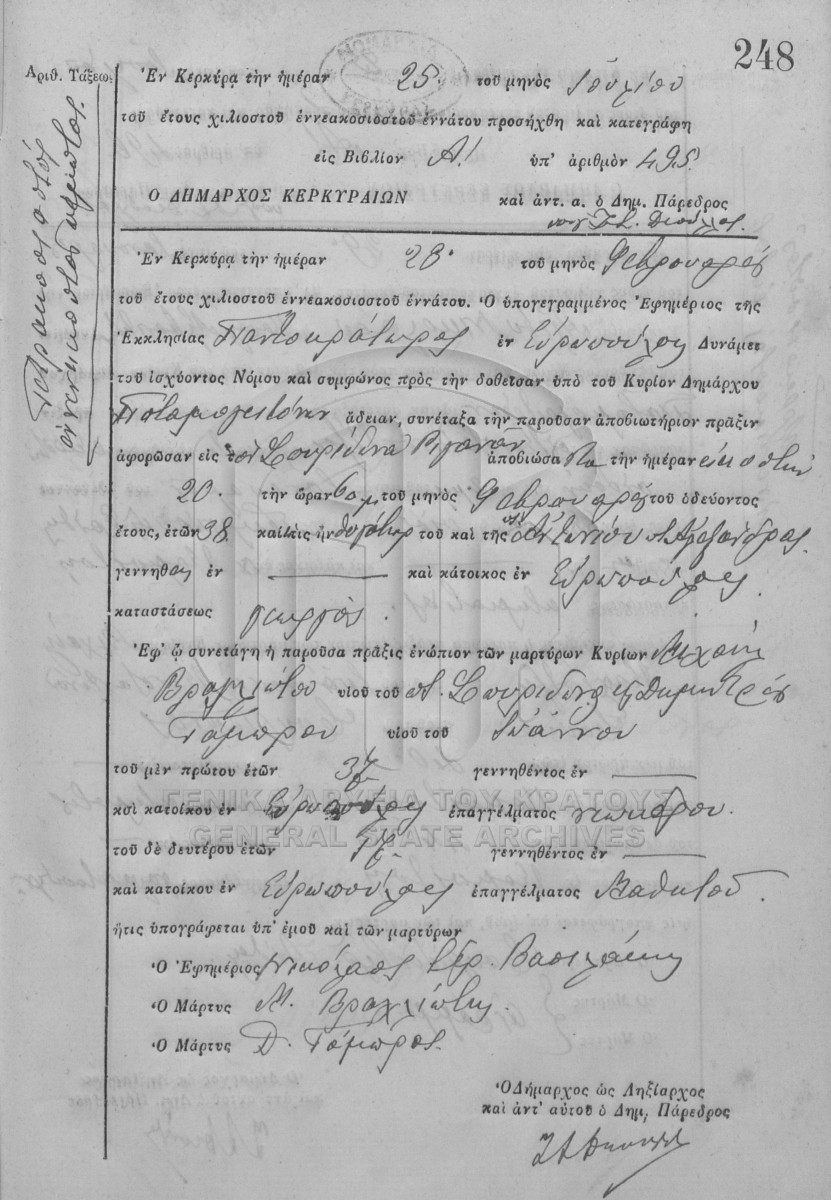 248
Αριθ. Τάξεως
Τετρακοσιοστός
ἐννενηκοστός πέμπτος.
Ἐν Κερκύρα τὴν ἡμέραν 25. τοῦ μηνὸς Ἰουλίου
τοῦ ἔτους χιλιοστοῦ ἐννεακοσιοστοῦ ἐννάτου προσήχθη καὶ κατεγράφη
εἰς Βιβλίον Α! ὑπ' ἀριθμὸν 495.
Ο ΔΗΜΑΡΧΟΣ ΚΕΡΚΥΡΑΙΩΝ καὶ ἀντ. α. ὁ Δημ. Πάρεδρος
Ἐν Κερκύρα τὴν ἡμέραν 28. τοῦ μηνὸς Φεβρουαρίου
τοῦ ἔτους χιλιοστοῦ ἐννεακοσιοστοῦ ἐννάτου. Ὁ ὑπογεγραμμένος Ἐφημέριος τῆς
Ἐκκλησίας Παντοκράτωρος ἐν Εὐρωπούλοις Δυνάμει
τοῦ ἰσχύοντος Νόμου καὶ συμφώνος πρὸς τὴν δοθεῖσαν ὑπὸ τοῦ Κυρίου Δημάρχου
Ποταμογειτόνων ἄδειαν, συνέταξα τὴν παροῦσαν ἀποβιωτήριον πρᾶξιν
ἀφορῶσαν εἰς τὸν Σπυρίδωνα ἀποβιώσαντα τὴν ἡμέραν εἰκοστήν
20. τὴν ὥραν 6 μ.μ τοῦ μηνὸς Φεβρουαρίου τοῦ ὁδεύοντος
ἔτους, ἐτῶν 38 καὶ τις ἦν τοῦ καὶ τῆς Ἀντωνίου Ἀλεξάνδρας.
γεννηθ ἐν —— καὶ κάτοικος ἐν Εὐρωπούλοις.
καταστάσεως γεωργὸς.
Ἐφ' ᾧ συνετάγη ἡ παροῦσα πρᾶξις ἐνώπιον τῶν μαρτύρων Κυρίων Μιχαὴλ
Βραχλιώτου υἱοῦ τοῦ ποτ. Σπυρίδωνος κ Δημητρίου
Τόμπρου υἱοῦ τοῦ Ἰωάννου
τοῦ μὲν πρώτου ἐτῶν 37 γεννηθέντος ἐν ——
κσὶ κατοίκου ἐν Εὐρωπούλοις ἐπαγγέλματος
ΓΕΝΙΚΑ ΑΡΧΕΙΑ ΤΟΥ ΚΡΑΤΟΥΣ
GENERAL STATE ARCHIVES
τοῦ δὲ δευτέρου ἐτῶν γεννηθέντος ἐν ——
καὶ κατοίκου ἐν Εὐρωπούλοις ἐπαγγέλματος Μαθητοῦ.
ἥτις ὑπογράφεται ὑπ' ἐμοῦ καὶ τῶν μαρτύρων
Ὁ Ἐφημέριος Νικόλαος Ἱερ. Βασιλάκης
Ὁ Μάρτυς Μ. Βραχλιώτης.
Ὁ Μάρτυς Δ. Τόμπρος.
Ὁ Δήμαρχος ὡς Ληξίαρχος
καὶ ἀντ' αὐτοῦ ὁ Δημ, Πάρεδρος